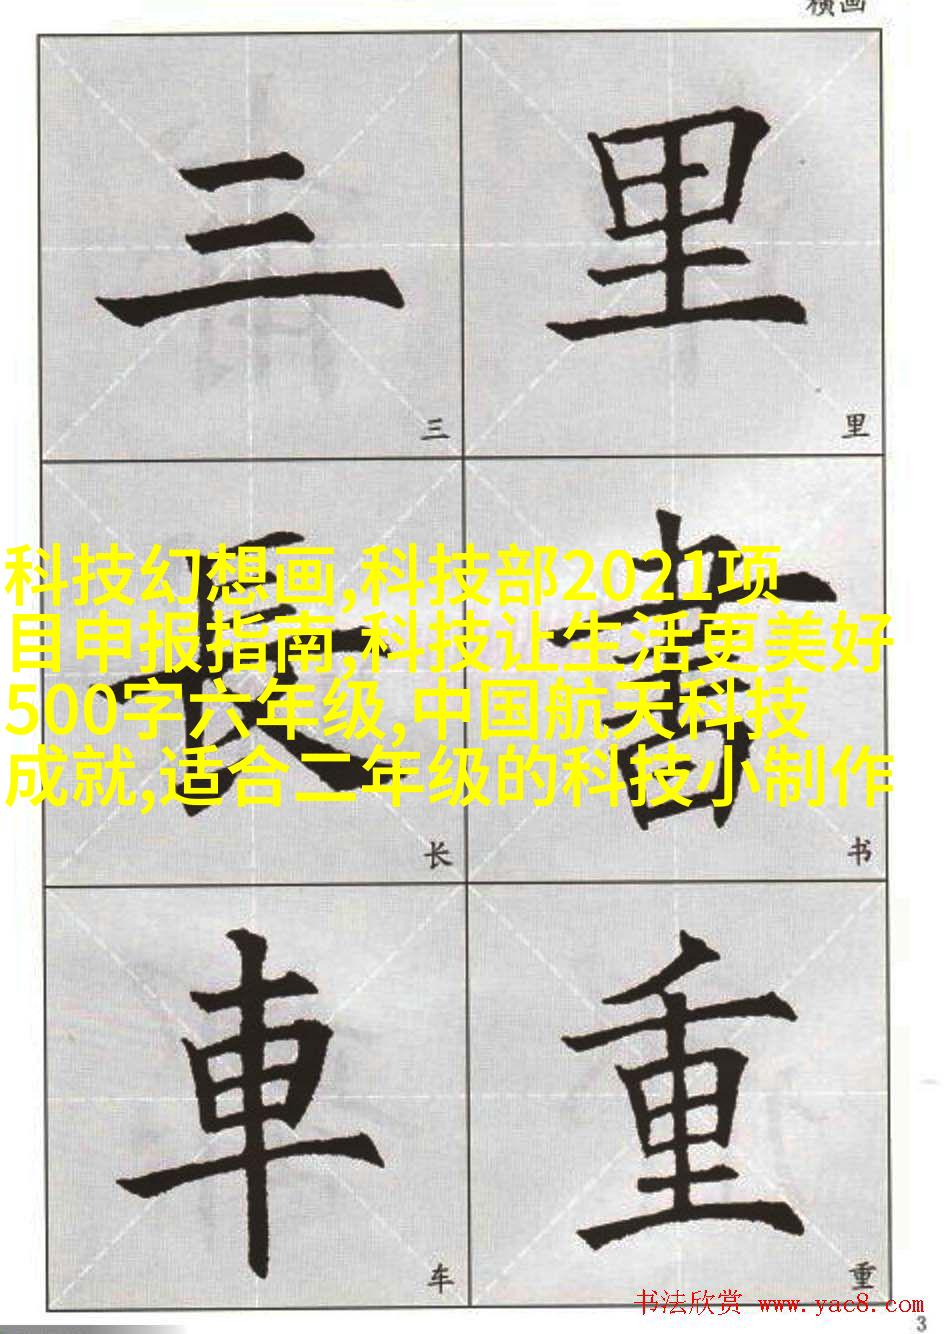 横画
三 里
三 里
科技幻想画,科技部2021项
目申报指南,科技让生活更美好
500字六年级,中国航天科技
成就,适合二年级的科技小制作
長 書
长 书
車 重
车 重
书法欣赏 www.yac8.com
3